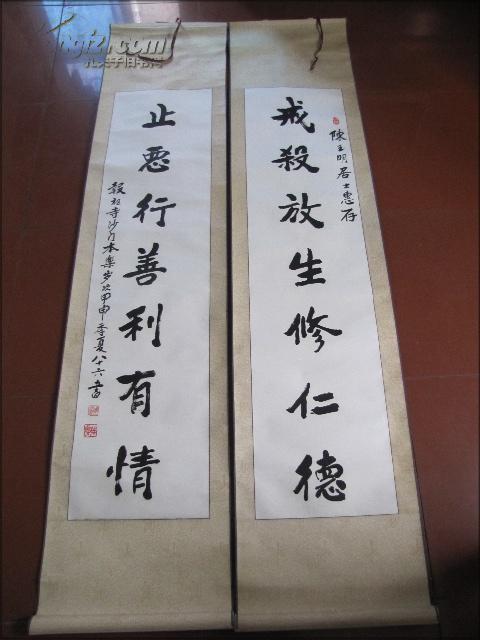 戒殺放生修仁德
陳玉明居士惠存
止悪行善利有情
報祖寺沙门本樂岁次甲申季夏八十六書
孔夫子旧书网